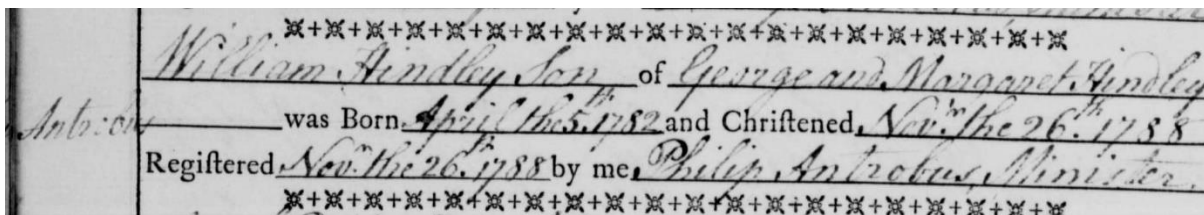 William Hindley Son of George and Margaret Hindley
Antrobus was Born April the 5th. 1782 and Chriſtened Novr. the 26th. 1788
Regiſtered Novr. the 26th. 1788 by me Philip Antrobus, Minister